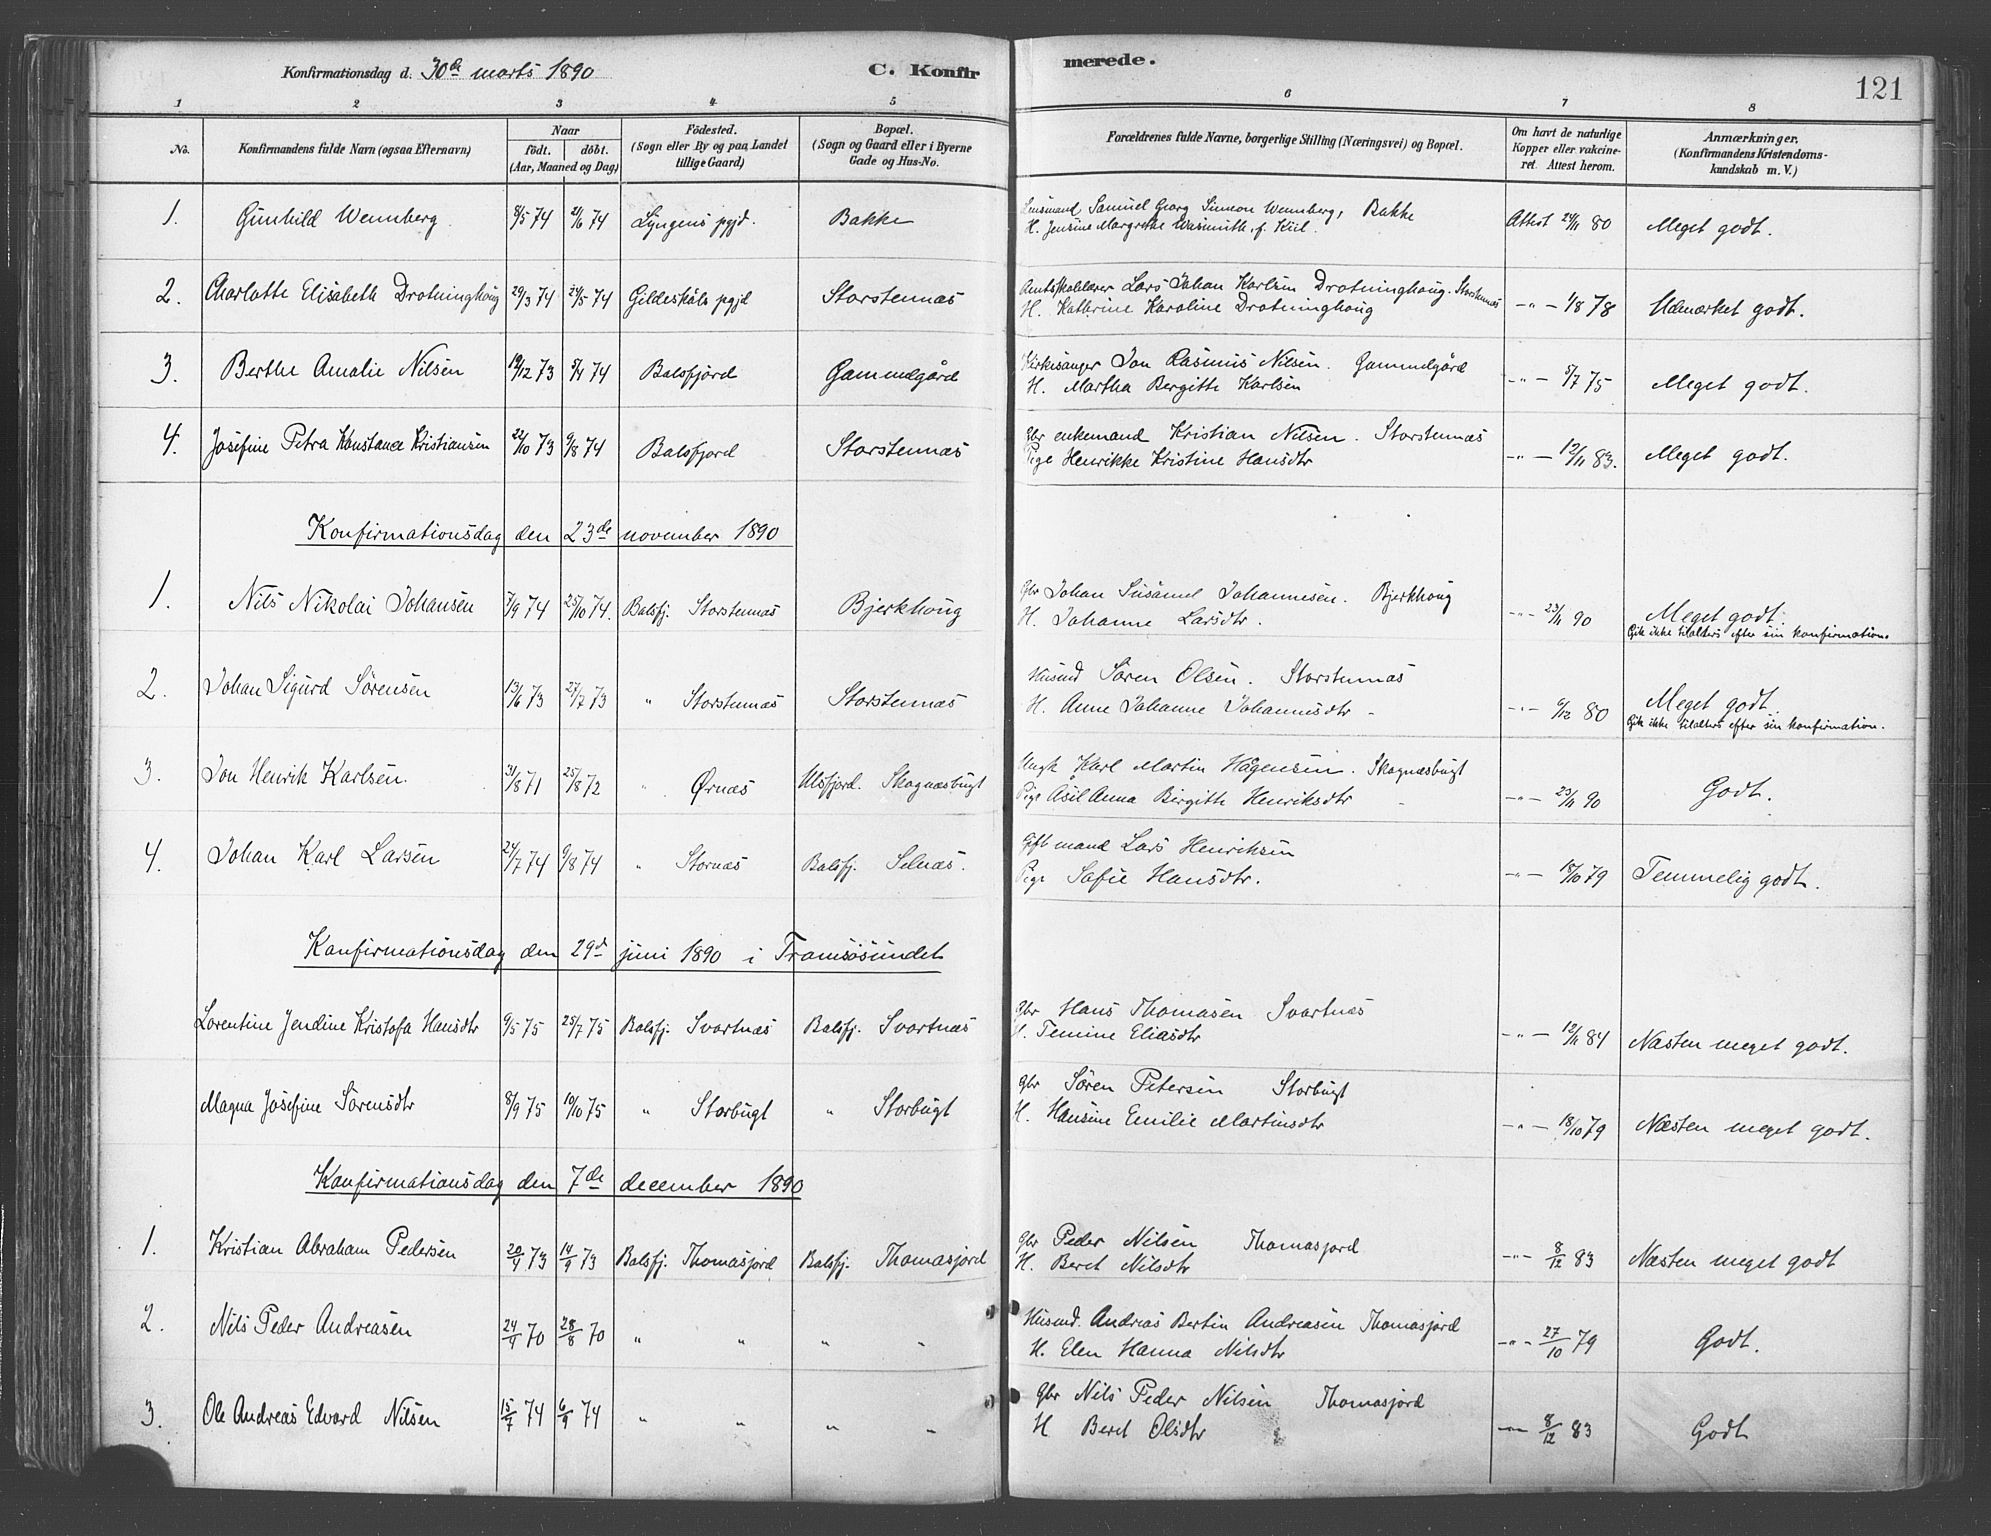 Konfirmationsdag d. 30de marts 1890 C. Konfirmerede. 121
1 2 3 4 5 6 7 8
No. Konfirmandens fulde Navn (ogsaa Efternavn) Naar födt. döbt. (Aar, Maaned og Dag) Födested. (Sogn eller By og paa Landet tillige Gaard) Bopæl. (Sogn og Gaard eller i Byerne Gade og Hus-No. Forældrenes fulde Navne, borgerlige Stilling (Næringsvei) og Bopæl. Om havt de naturlige Kopper eller vakcineret. Attest herom. Anmærkninger. (Konfirmandens Kristendomskundskab m. V.)
1. Gunhild Wennberg 8/5 74 21/6 74 Lyngens pgjd. Bakke Lensmand Samuel Georg Simeon Wennberg, Bakke Attest 29/11 80 Meget godt.
H. Jensine Margrethe Wasmuth, f. Kiil.
2. Charlotte Elisabeth Drotninghoug 29/3 74 24/5 74 Gildeskåls pgjd Storstennæs Amtsskolelærer Lars Johan Karlsen Drotninghoug. Storstennæs -"- 1/8 78 Udmærket godt.
H. Kathrine Karoline Drotninghoug
3. Berthe Amalie Nilsen 19/12 73 5/4 74 Balsfjord Gammelgård Kirkesanger Jon Rasmus Nilsen. Gammelgård -"- 5/7 75 Meget godt.
H. Martha Bergitte Karlsen
4. Josefine Petra Konstance Kristiansen 22/10 73 9/8 74 Balsfjord Storstennæs Gbr enkemand Kristian Nilsen. Storstennæs -"- 12/11 83. Meget godt.
Pige Henrikke Kristine Hansdtr
Konfirmationsdag den 23de november 1890
1. Nils Nikolai Johansen 7/9 74 25/10 74. Balsfj. Storstennæs Bjerkhoug Gbr Johan Susamel Johannesen. Bjerkhoug -"- 23/11 90 Meget godt.
H. Johanne Larsdtr. Gik ikke tilalters efter sin konfirmation.
2. Johan Sigurd Sörensen 13/6 73 27/7 73 " Storstennæs Storstennæs Husmd Sören Olsen. Storstennæs
H. Anne Johanne Johannesdtr - -"- 9/12 80 Meget godt.
Gik ikke tilalters efter sin konfirmation.
3. Jon Henrik Karlsen. 31/8 71 25/8 72 " Ørnæs Ulsfjord. Skognæsbugt Ungk Karl Martin Hågensen. Skognæsbugt
Pige Åsil Anna Birgitte Henriksdtr -"- 23/11 90 Godt.
4. Johan Karl Larsen 24/7 74 9/8 74 " Stornæs Balsfj. Selnæs. Gift mand Lars Henriksen
Pige Safie Hansdtr. -"- 18/10 79 Temmelig godt.
Konfirmationsdag den 29d juni 1890 i Tromsösundet
Lorentine Jendine Kristofa Hansdtr 9/5 75 25/7 75 Balsfj. Svartnæs Balsfj. Svartnæs Gbr Hans Thomasen Svartnæs
H. Temine Eliasdtr -"- 12/11 84 Næsten meget godt.
Magna Josefine Sörensdtr 8/9 75 10/10 75 " Storbugt " Storbugt Gbr Sören Petersen Storbugt
H. Hansine Emilie Martinsdtr -"- 18/10 79 Næsten meget godt.
Konfirmationsdag den 7de december 1890
1. Kristian Abraham Pedersen 20/4 73 14/9 73 Balsfj. Thomasjord Balsfj. Thomasjord Gbr Peder Nilsen Thomasjord -"- 8/12 83 Næsten meget godt
H. Beret Nilsdtr
2. Nils Peder Andreasen 24/4 70 28/8 70 " " " " Husmd. Andreas Bertin Andreasen Thomasjord -"- 27/10 79 Godt.
H. Elen Hanna Nilsdtr
3. Ole Andreas Edvard Nilsen 15/7 74 6/9 74 " " " " Gbr Nils Peder Nilsen Thomasjord
H Beret Olsdtr -"- 8/12 83 Godt